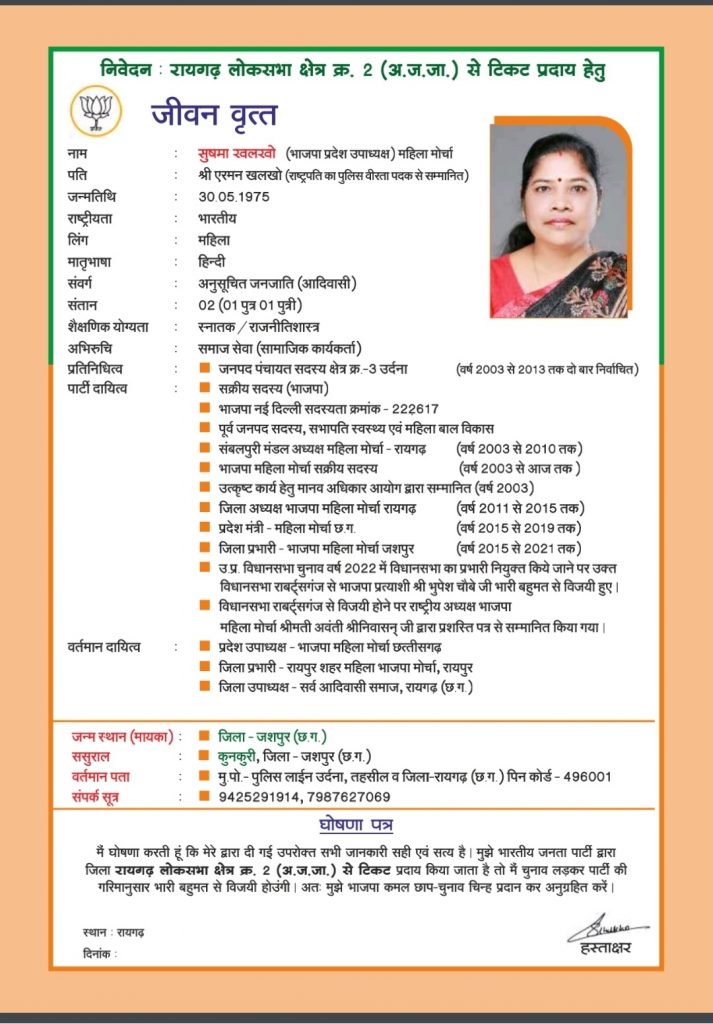 निवेदन : रायगढ़ लोकसभा क्षेत्र क्र. 2 (अ.ज.जा.) से टिकट प्रदाय हेतु
जीवन वृत्त
नाम : सुषमा खलखो (भाजपा प्रदेश उपाध्यक्ष) महिला मोर्चा
पति : श्री एरमन खलखो (राष्ट्रपति का पुलिस वीरता पदक से सम्मानित)
जन्मतिथि : 30.05.1975
राष्ट्रीयता : भारतीय
लिंग : महिला
मातृभाषा : हिन्दी
संवर्ग : अनुसूचित जनजाति (आदिवासी)
संतान : 02 (01 पुत्र 01 पुत्री)
शैक्षणिक योग्यता : स्नातक / राजनीतिशास्त्र
अभिरुचि : समाज सेवा (सामाजिक कार्यकर्ता)
प्रतिनिधित्व : जनपद पंचायत सदस्य क्षेत्र क्र.-3 उर्दना (वर्ष 2003 से 2013 तक दो बार निर्वाचित)
पार्टी दायित्व : सक्रीय सदस्य (भाजपा)
भाजपा नई दिल्ली सदस्यता क्रमांक - 222617
पूर्व जनपद सदस्य, सभापति स्वस्थ्य एवं महिला बाल विकास
संबलपुरी मंडल अध्यक्ष महिला मोर्चा - रायगढ़ (वर्ष 2003 से 2010 तक)
भाजपा महिला मोर्चा सक्रीय सदस्य (वर्ष 2003 से आज तक )
उत्कृष्ट कार्य हेतु मानव अधिकार आयोग द्वारा सम्मानित (वर्ष 2003)
जिला अध्यक्ष भाजपा महिला मोर्चा रायगढ़ (वर्ष 2011 से 2015 तक)
प्रदेश मंत्री - महिला मोर्चा छ.ग. (वर्ष 2015 से 2019 तक)
जिला प्रभारी - भाजपा महिला मोर्चा जशपुर (वर्ष 2015 से 2021 तक)
उ.प्र. विधानसभा चुनाव वर्ष 2022 में विधानसभा का प्रभारी नियुक्त किये जाने पर उक्त
विधानसभा राबर्ट्सगंज से भाजपा प्रत्याशी श्री भुपेश चौबे जी भारी बहुमत से विजयी हुए।
विधानसभा राबर्ट्सगंज से विजयी होने पर राष्ट्रीय अध्यक्ष भाजपा
महिला मोर्चा श्रीमती अवंती श्रीनिवासन् जी द्वारा प्रशस्ति पत्र से सम्मानित किया गया।
वर्तमान दायित्व : प्रदेश उपाध्यक्ष - भाजपा महिला मोर्चा छत्तीसगढ़
जिला प्रभारी - रायपुर शहर महिला भाजपा मोर्चा, रायपुर
जिला उपाध्यक्ष - सर्व आदिवासी समाज, रायगढ़ (छ.ग.)
जन्म स्थान (मायका) : जिला - जशपुर (छ.ग.)
ससुराल : कुनकुरी, जिला - जशपुर (छ.ग.)
वर्तमान पता : मु.पो.- पुलिस लाईन उर्दना, तहसील व जिला-रायगढ़ (छ.ग.) पिन कोर्ड - 496001
संपर्क सूत्र : 9425291914, 7987627069
घोषणा पत्र
मैं घोषणा करती हूं कि मेरे द्वारा दी गई उपरोक्त सभी जानकारी सही एवं सत्य है। मुझे भारतीय जनता पार्टी द्वारा
जिला रायगढ़ लोकसभा क्षेत्र क्र. 2 (अ.ज.जा.) से टिकट प्रदाय किया जाता है तो मैं चुनाव लड़कर पार्टी की
गरिमानुसार भारी बहुमत से विजयी होउंगी। अतः मुझे भाजपा कमल छाप-चुनाव चिन्ह प्रदान कर अनुग्रहित करें।
स्थान : रायगढ़
हस्ताक्षर
दिनांक :